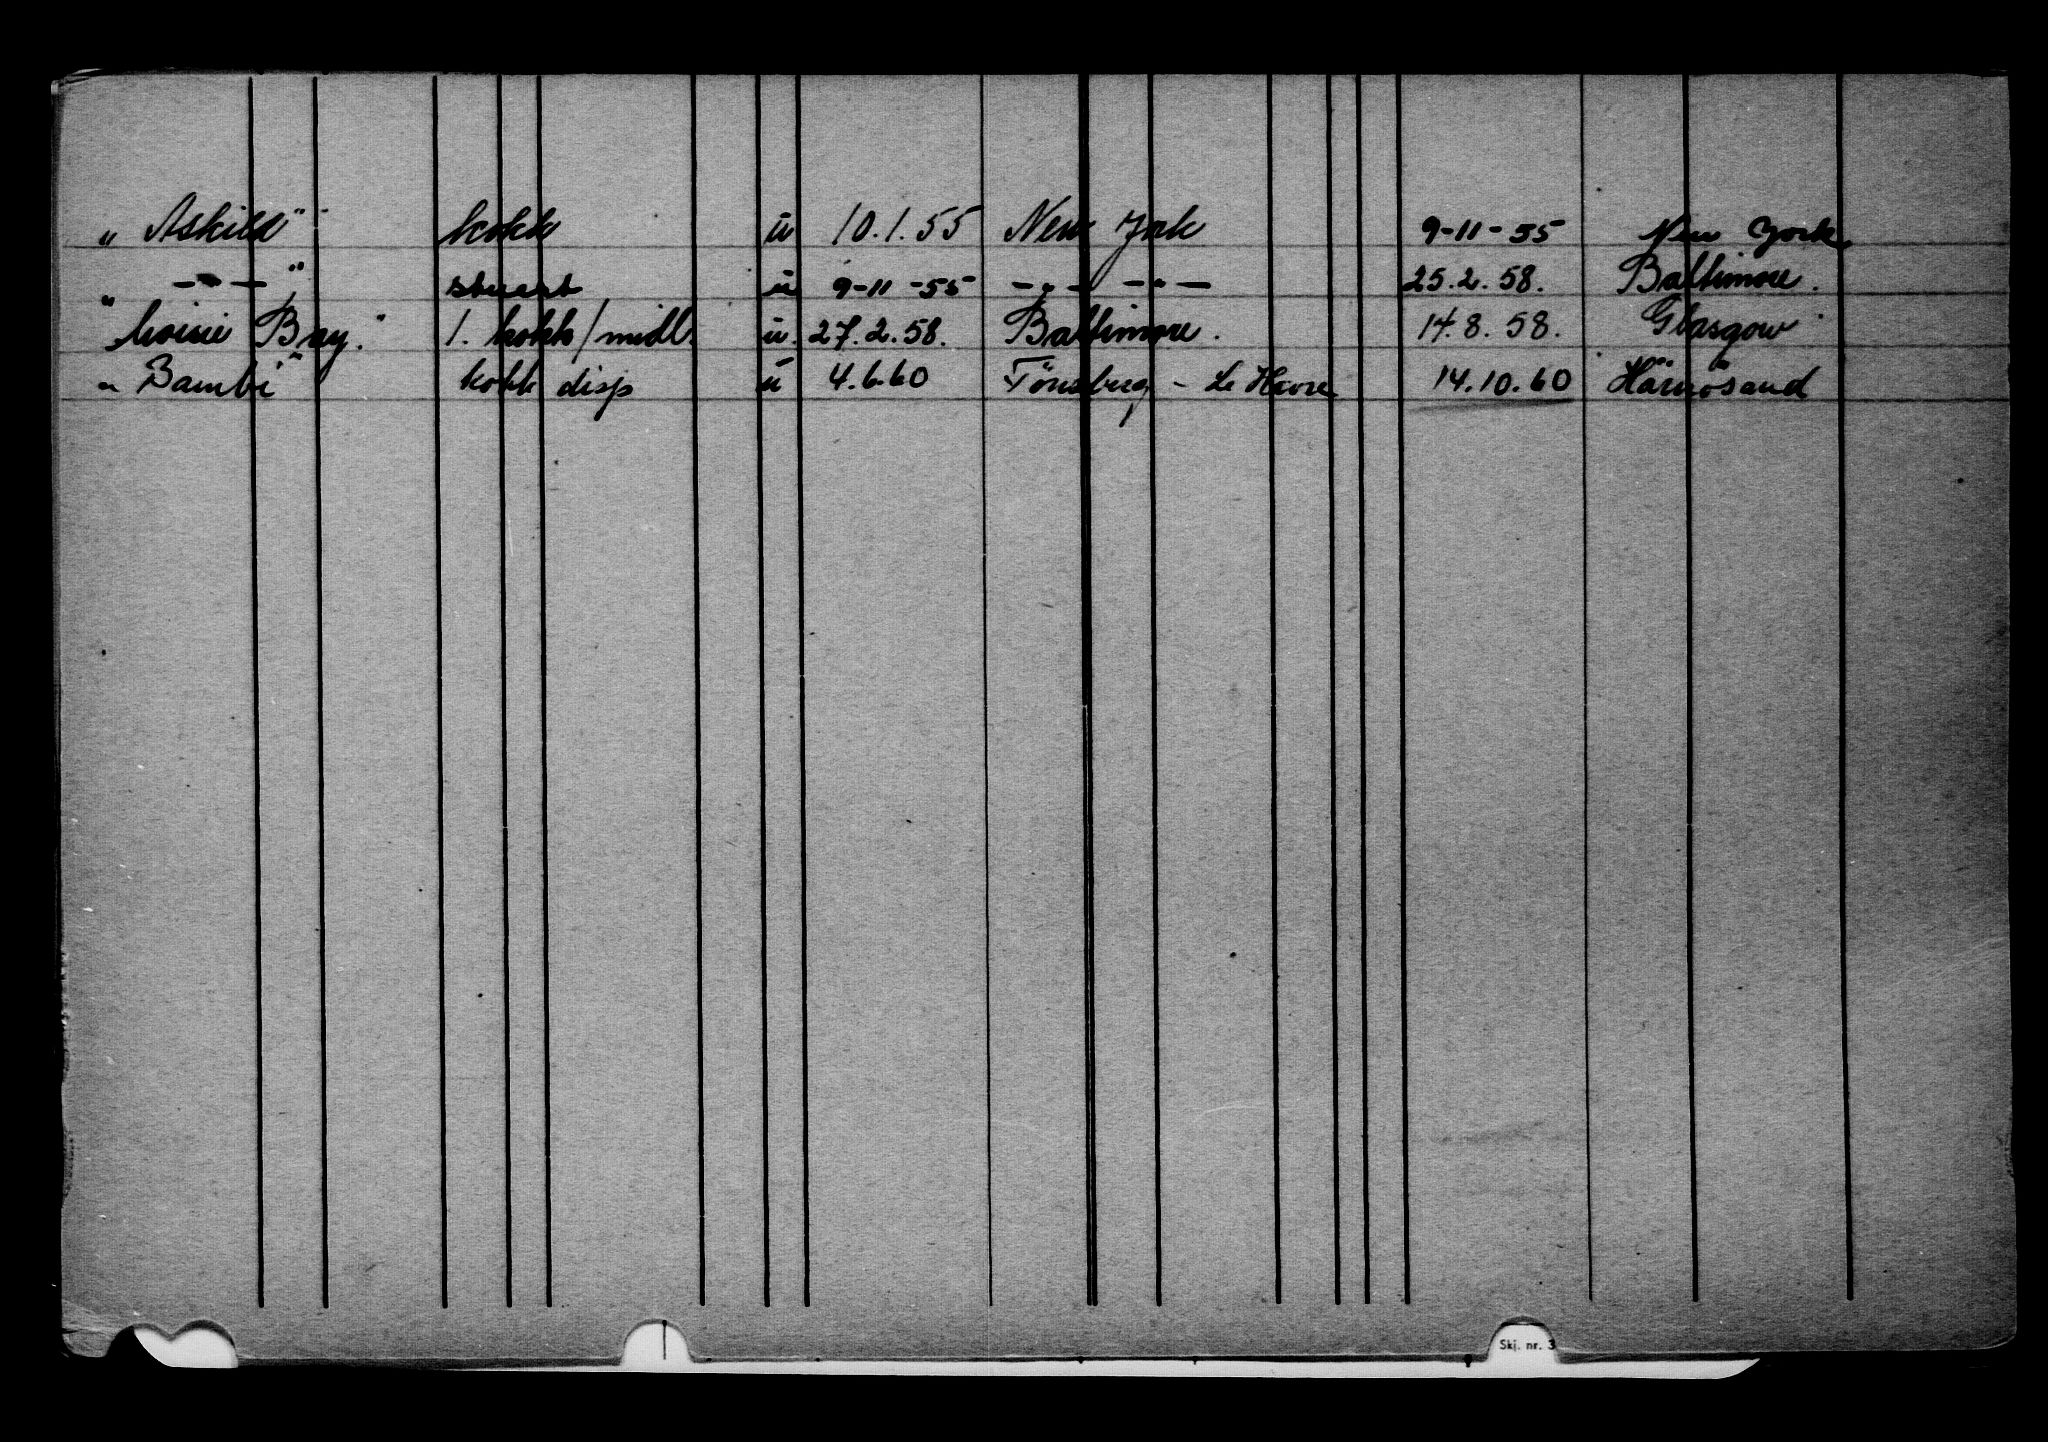 „ Askild" kokk ü 10.1.55 New York 9-11-55 New York
—"— " stuert ü 9-11-55 —"— —"— 25.2.58. Baltimore.
" Moisie Bay." 1. kokk/midl. ü. 27.2.58. Baltimore. 14.8.58. Glasgow
„ Bambi" kokk disp ü 4.6.60 Tönsberg - Le Havre 14.10.60 Härnösand
Skj. nr. 3